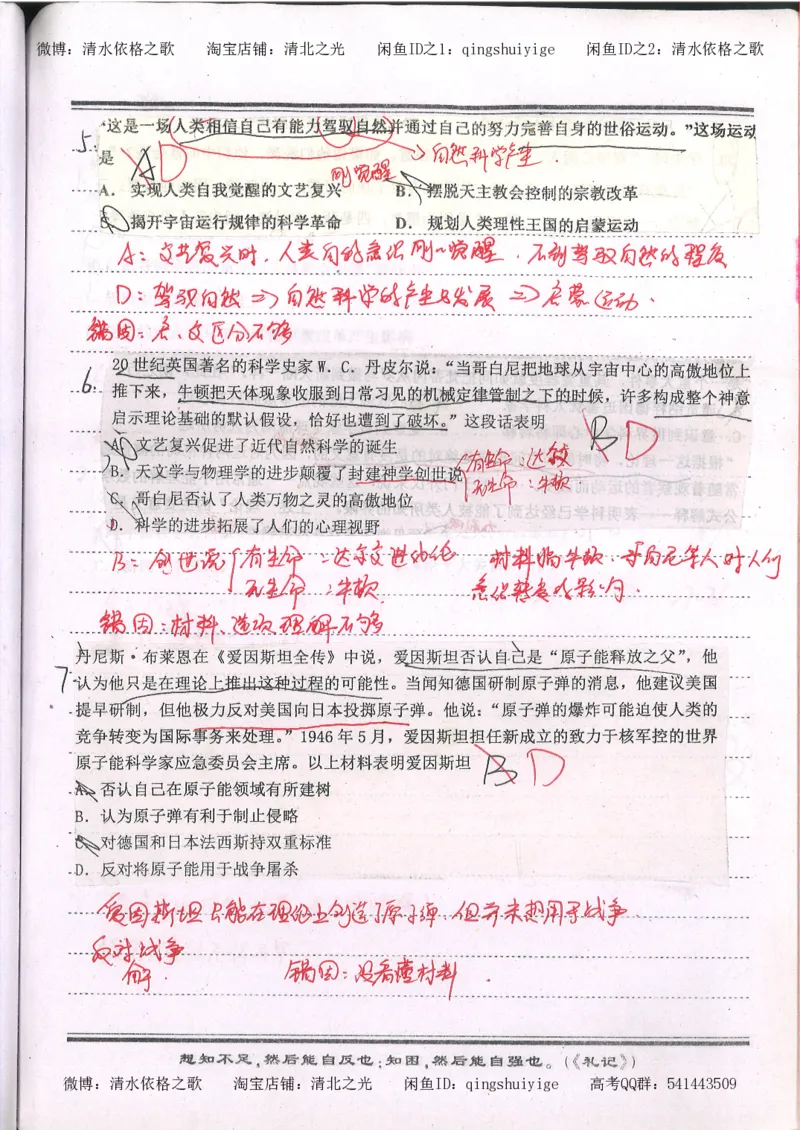 微博：清水依格之歌 淘宝店铺：清北之光 闲鱼ID之1：qingshuiyige 闲鱼ID之2：清水依格之歌
5. “这是一场人类相信自己有能力驾驭自然并通过自己的努力完善自身的世俗运动。”这场运动
是 A D → 自然科学产生.
刚觉醒
A. 实现人类自我觉醒的文艺复兴 B. 摆脱天主教会控制的宗教改革
C. 揭开宇宙运行规律的科学革命 D. 规划人类理性王国的启蒙运动
A：文艺复兴时，人类自的意识刚刚觉醒．不到驾驭自然的程度
D：驾驭自然 ⇒ 自然科学的产生与发展 ⇒ 启蒙运动．
错因：启、文区分不够
6. 20世纪英国著名的科学史家W．C．丹皮尔说：“当哥白尼把地球从宇宙中心的高傲地位上
推下来，牛顿把天体现象收服到日常习见的机械定律管制之下的时候，许多构成整个神意
启示理论基础的默认假设，恰好也遭到了破坏。”这段话表明
B D
A. 文艺复兴促进了近代自然科学的诞生
B. 天文学与物理学的进步颠覆了封建神学创世说 有生命：达尔文 无生命：牛顿
C. 哥白尼否认了人类万物之灵的高傲地位
D. 科学的进步拓展了人们的心理视野
B：创世说 有生命：达尔文进化论 材料为牛顿．哥白尼等人对人们
无生命：牛顿. 意识转变的影响．
错因：材料、选项理解不够
7 丹尼斯·布莱恩在《爱因斯坦全传》中说，爱因斯坦否认自己是“原子能释放之父”，他
认为他只是在理论上推出这种过程的可能性。当闻知德国研制原子弹的消息，他建议美国
提早研制，但他极力反对美国向日本投掷原子弹。他说：“原子弹的爆炸可能迫使人类的
竞争转变为国际事务来处理。”1946年5月，爱因斯坦担任新成立的致力于核军控的世界
原子能科学家应急委员会主席。以上材料表明爱因斯坦 B D
A. 否认自己在原子能领域有所建树
B. 认为原子弹有利于制止侵略
C. 对德国和日本法西斯持双重标准
D. 反对将原子能用于战争屠杀
爱因斯坦只能在理论上创造了原子弹 但并未想用于战争
反对战争
错因：没看懂材料．
想知不足，然后能自反也；知困，然后能自强也。（《礼记》）
微博：清水依格之歌 淘宝店铺：清北之光 闲鱼ID：qingshuiyige 高考QQ群：541443509